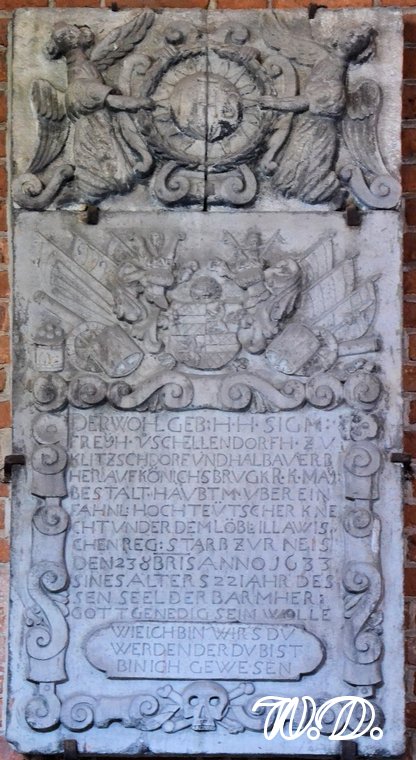 DER WOHLGEB: H: H SIGM:
FREYH: V SCHELLENDORFH: ZV
KLITZSCHDORF VND HALBAV ERB
HER AVF KÖNICHSBRVG K R K MAY:
BESTALT HAVBTM: VBER EIN
FAHNL: HOCHTEVTSCHER KNE
CHT VNDER DEM LÖBL: ILLAWIS
CHEN REG: STARB ZVR NEIS
DEN 23 8BRIS ANNO 1633
SINES ALTERS 22 IAHR DES
SEN SEEL DER BARMHER:
GOTT GENEDIG SEIN WOLLE
WIE ICH BIN WIRS DV
WERDEN DER DV BIST
BIN ICH GEWESEN
W.D.